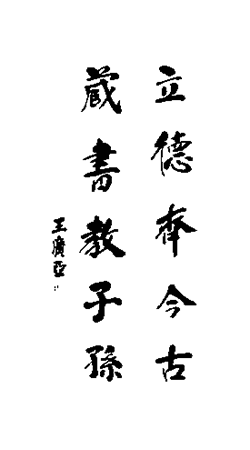 立德齊今古
藏書教子孫
王廣亞